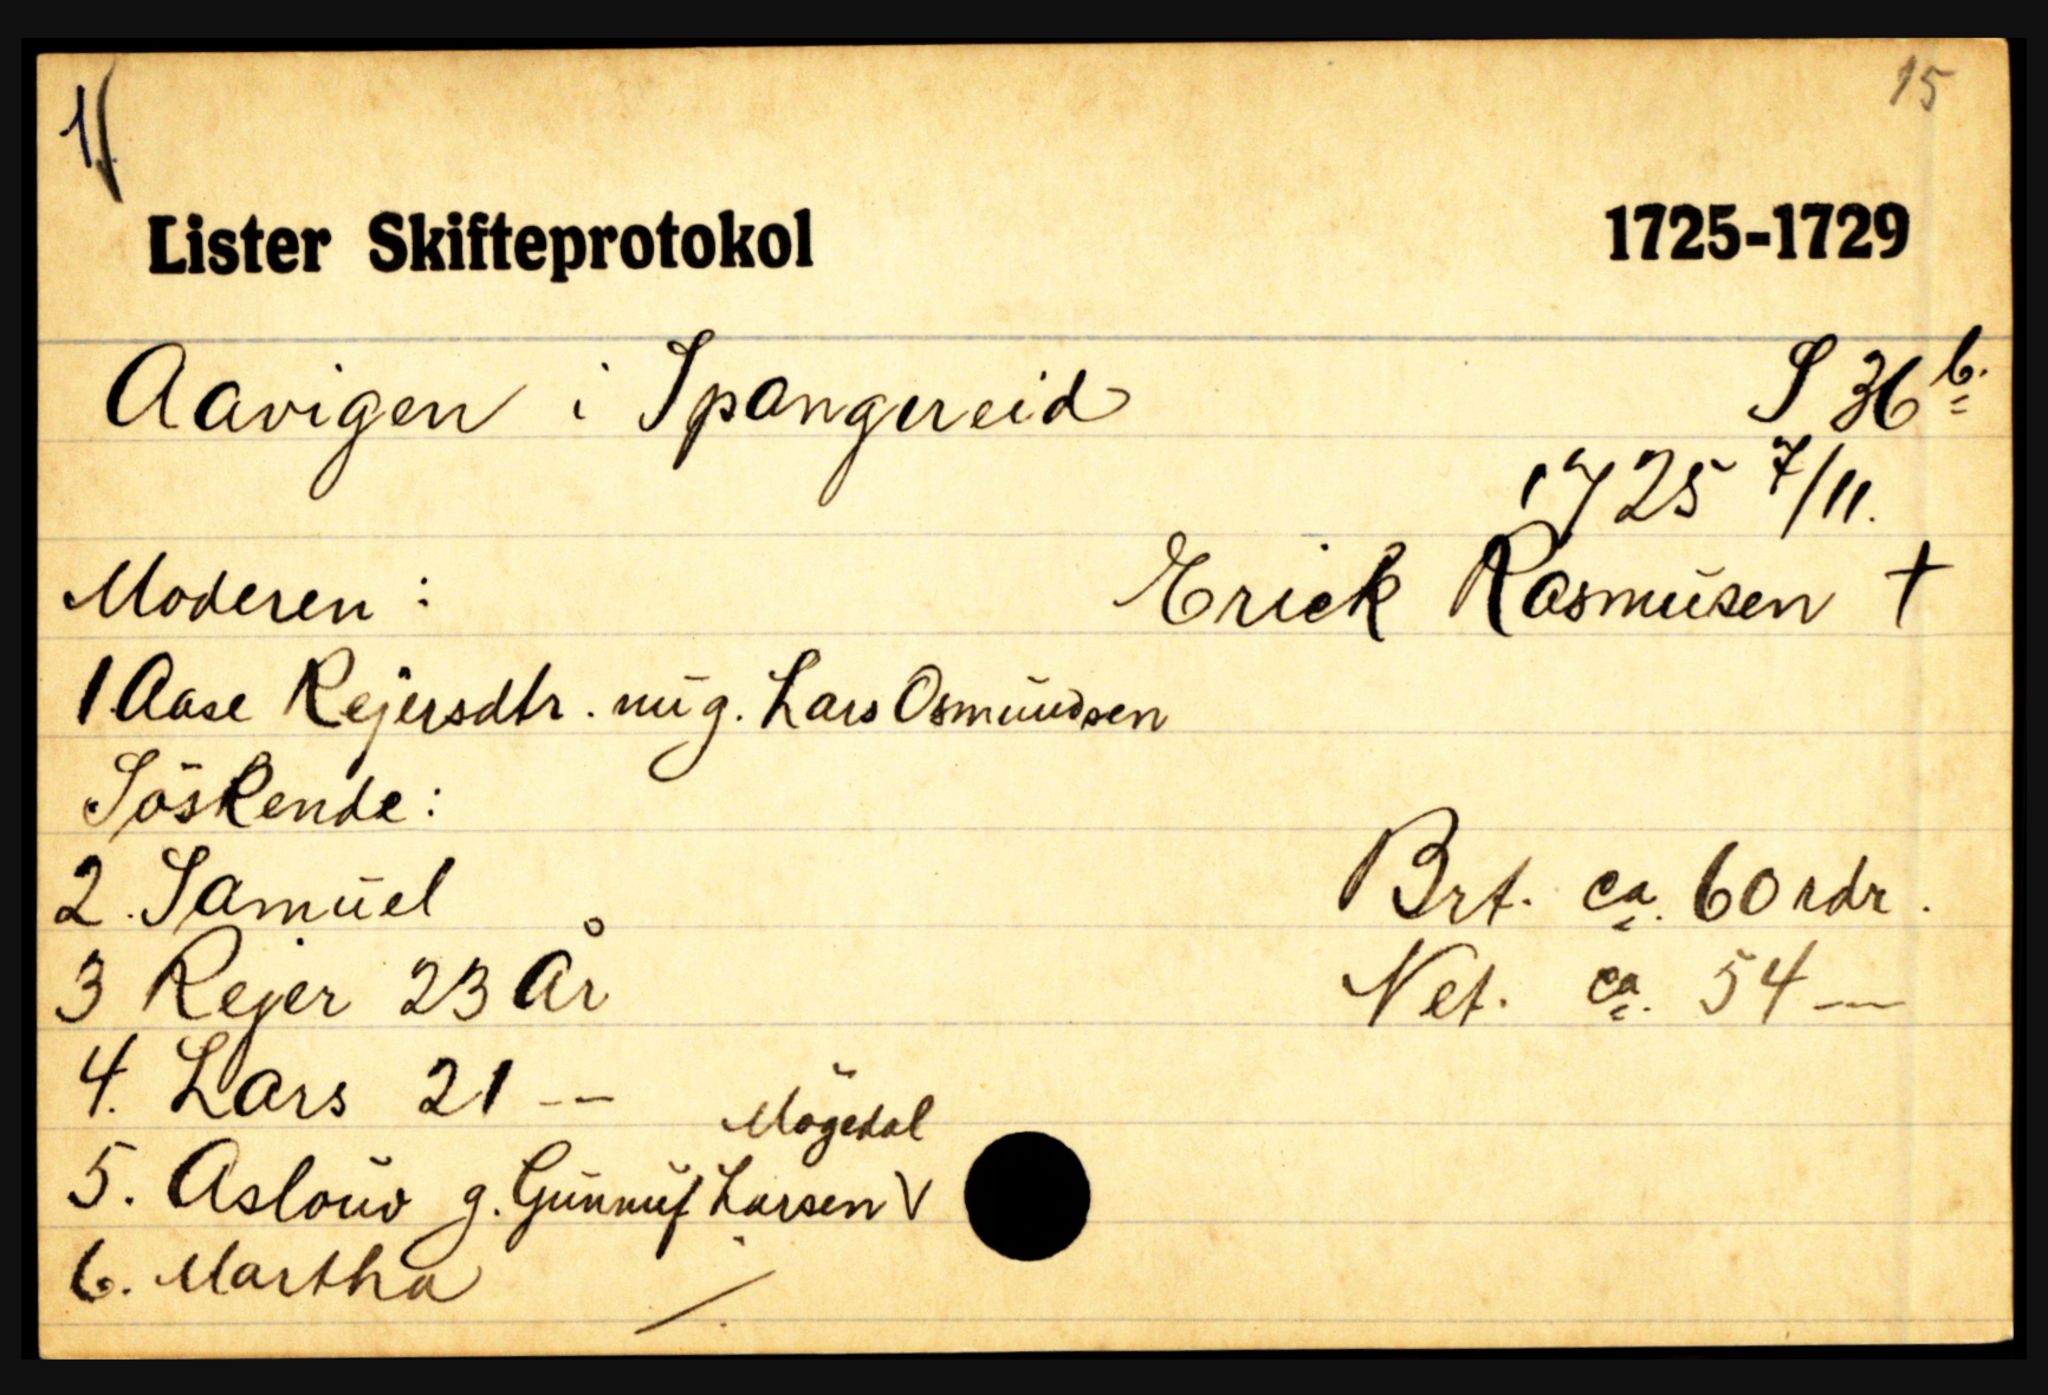 1
15
Lister Skifteprotokol 1725-1729
Aavigen i Spangereid S 36 b.
1725 7/11.
Moderen : Erick Rasmusen †
1 Aase Rejersdtr. nu g. Lars Osmundsen
Söskende:
2. Samuel Brt. ca. 60 rdr.
3 Rejer 23 År Net. ca. 54 —
4. Lars 21 —
Mögedal
5. Aslouv g. Gunnuf Larsen V
6. Martha